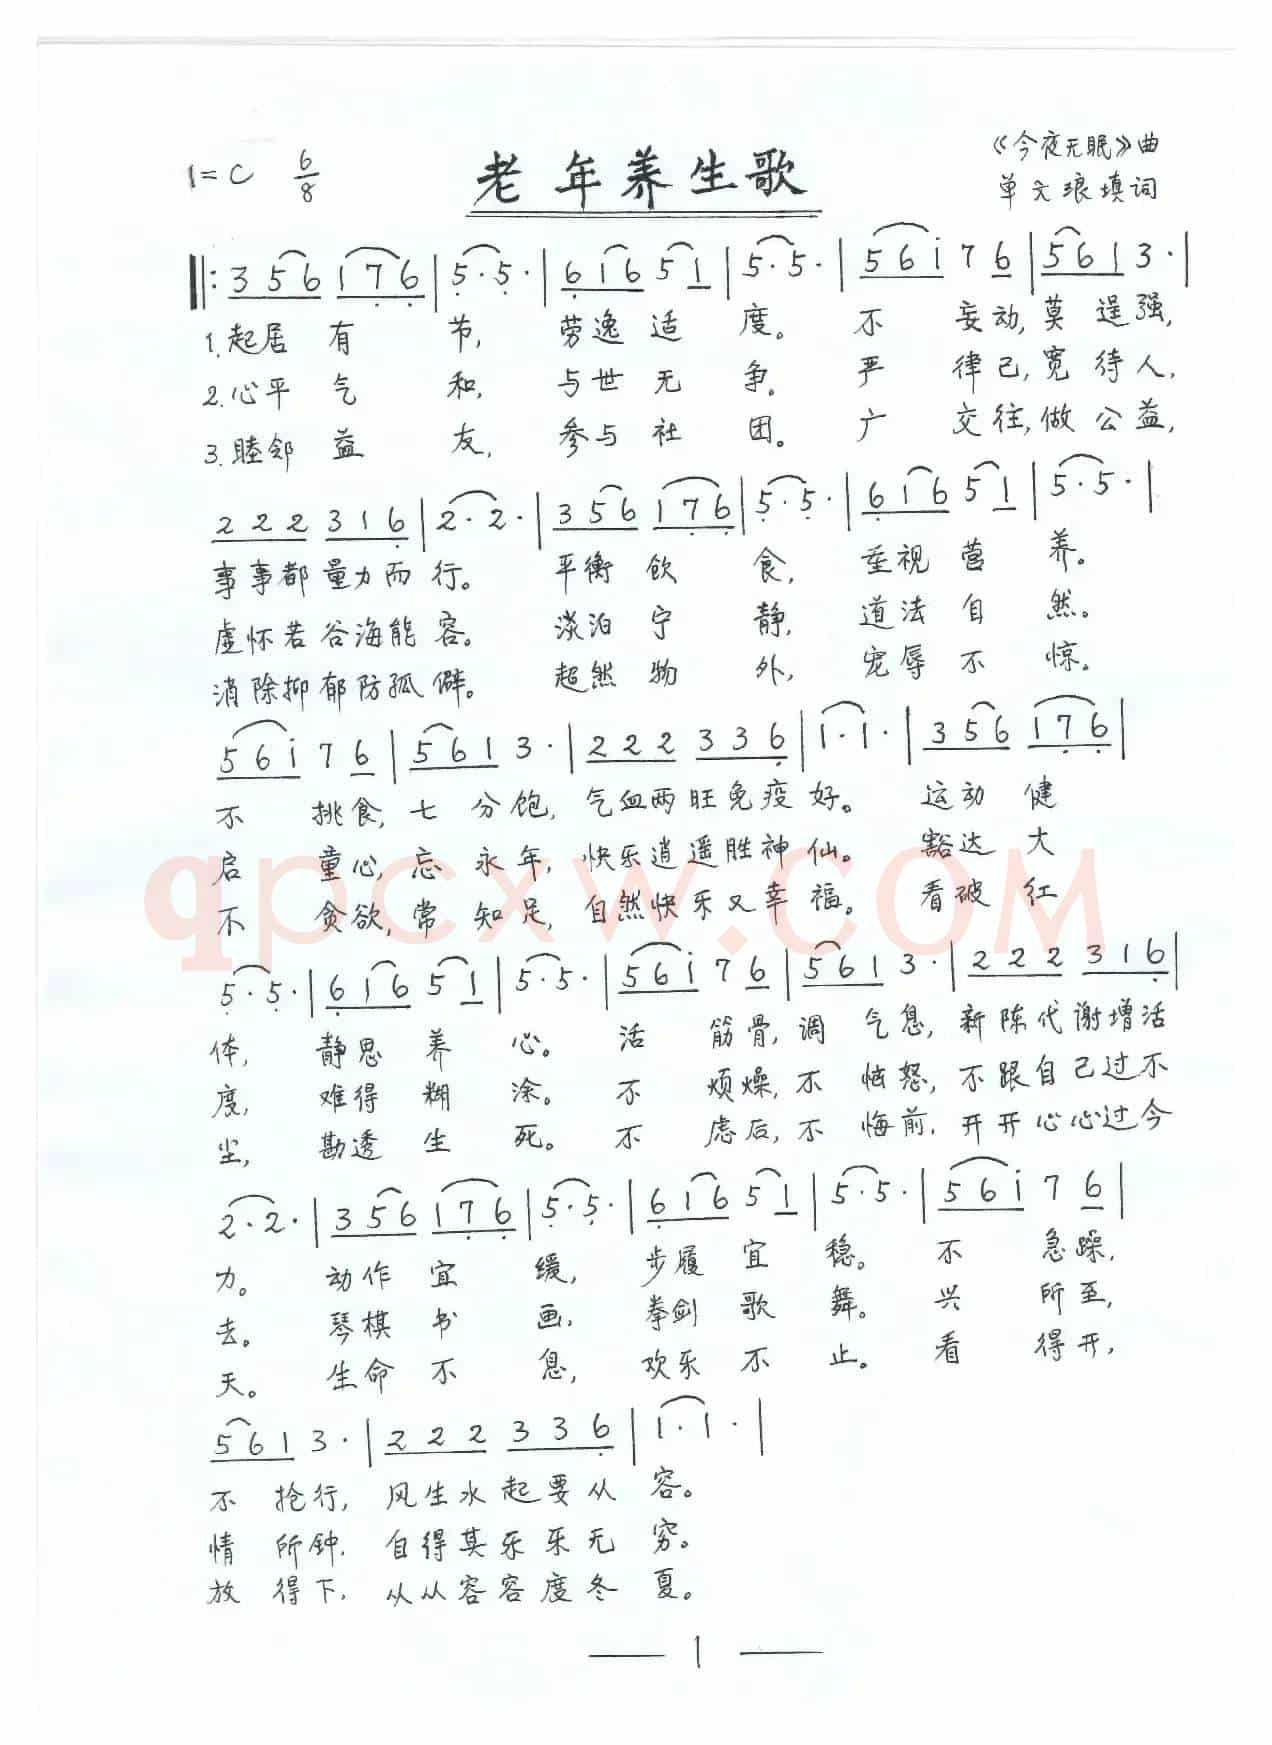 1=C 6/8
老年养生歌
《今夜无眠》曲
单文琅填词
‖: 3 5 6 1 7 6 | 5 · 5 · | 6 1 6 5 1 | 5 · 5 · | 5 6 i 7 6 | 5 6 1 3 · |
1.起居有节,劳逸适度。不妄动,莫逞强,
2.心平气和,与世无争。严律己,宽待人,
3.睦邻益友,参与社团。广交往,做公益,
2 2 2 3 1 6 | 2 · 2 · | 3 5 6 1 7 6 | 5 · 5 · | 6 1 6 5 1 | 5 · 5 · |
事事都量力而行。平衡饮食,重视营养。
虚怀若谷海能容。淡泊宁静,道法自然。
消除抑郁防孤僻。超然物外,宠辱不惊。
5 6 i 7 6 | 5 6 1 3 · | 2 2 2 3 3 6 | 1 · 1 · | 3 5 6 1 7 6 |
不挑食,七分饱,气血两旺免疫好。运动健
启童心,忘永年,快乐逍遥胜神仙。豁达大
不贪欲,常知足,自然快乐又幸福。看破红
5 · 5 · | 6 1 6 5 1 | 5 · 5 · | 5 6 i 7 6 | 5 6 1 3 · | 2 2 2 3 1 6 |
体,静思养心。活筋骨,调气息,新陈代谢增活
度,难得糊涂。不烦燥,不恼怒,不跟自己过不
尘,勘透生死。不虑后,不悔前,开开心心过今
2 · 2 · | 3 5 6 1 7 6 | 5 · 5 · | 6 1 6 5 1 | 5 · 5 · | 5 6 i 7 6 |
力。动作宜缓,步履宜稳。不急躁,
去。琴棋书画,拳剑歌舞。兴所至,
天。生命不息,欢乐不止。看得开,
5 6 1 3 · | 2 2 2 3 3 6 | 1 · 1 · |
不抢行,风生水起要从容。
情所钟,自得其乐乐无穷。
放得下,从从容容度冬夏。
— 1 —
qpcxw.COM